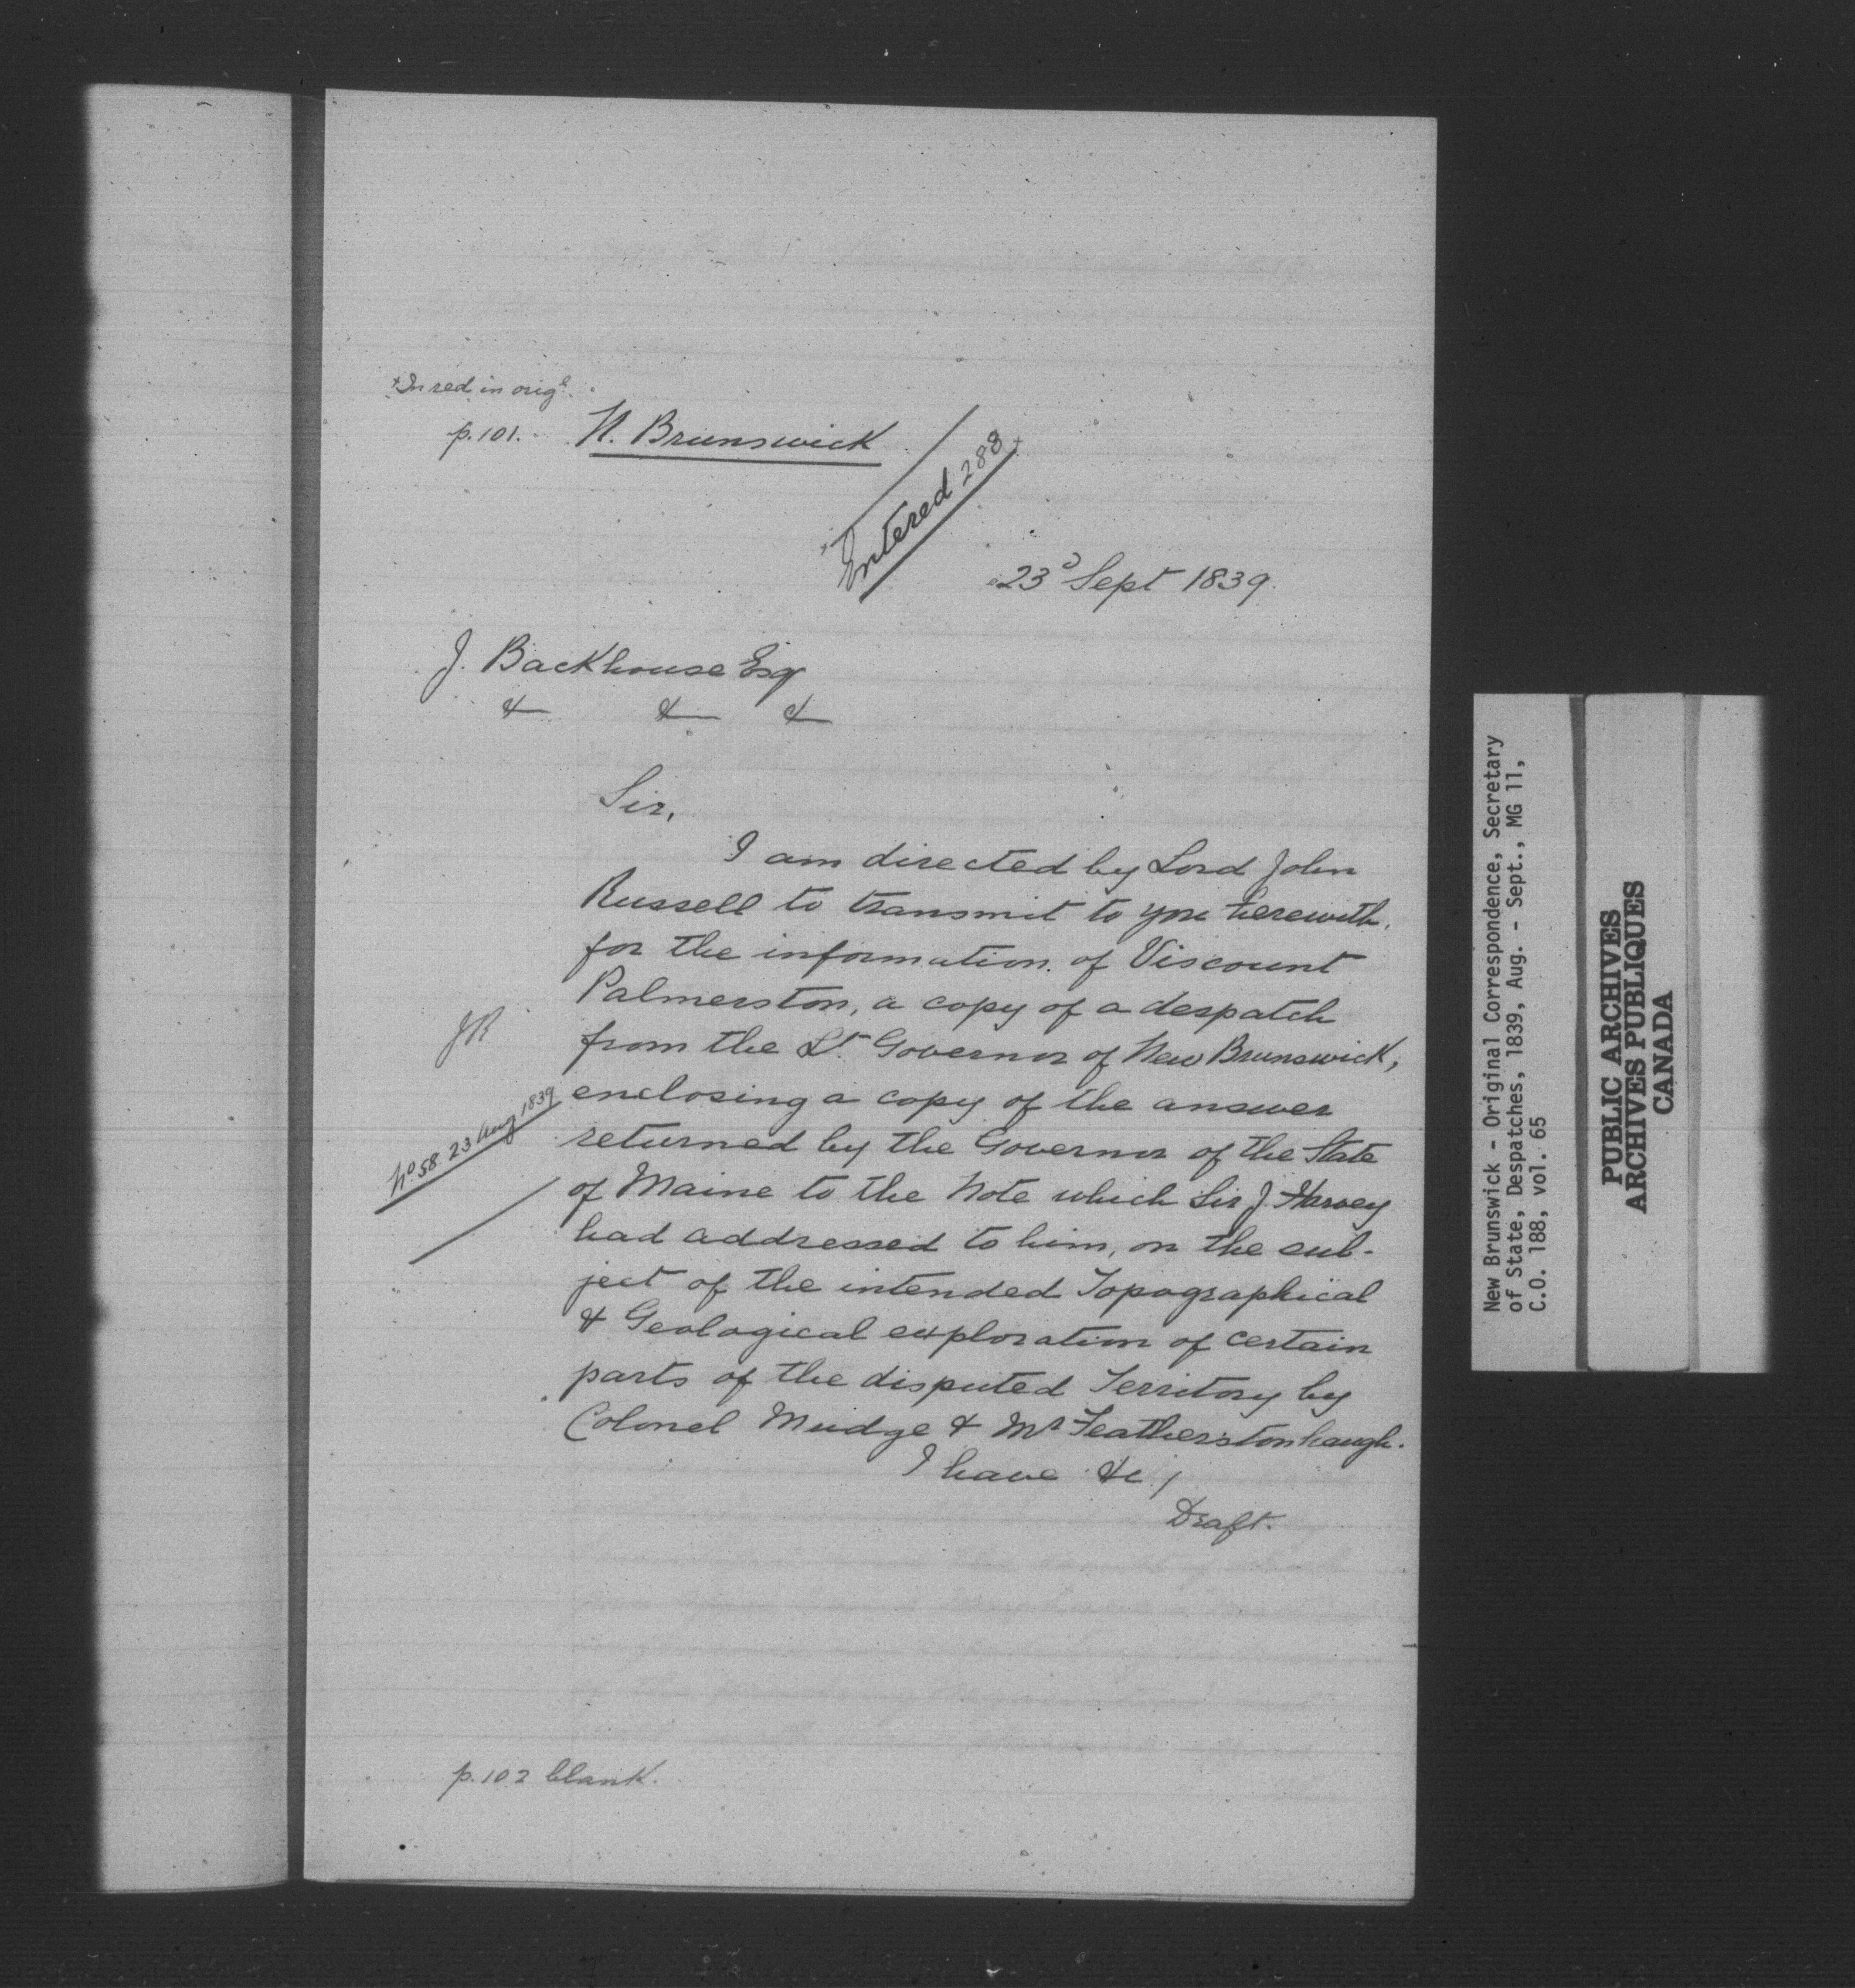 +In red in origl.
p.101. N. Brunswick
+Entered 288+
23d Sept 1839.
J. Backhouse Esq
& & &
Sir,
I am directed by Lord John
Russell to transmit to you herewith,
for the information of Viscount
Palmerston, a copy of a despatch
JR
from the Lt. Governor of New Brunswick,
No. 58. 23 Aug 1839
enclosing a copy of the answer
returned by the Governor of the State
of Maine to the Note which Sir J. Harvey
had addressed to him, on the sub-
ject of the intended Topographical
& Geological exploration of certain
parts of the disputed Territory by
Colonel Mudge & Mr Featherstonhaugh.
I have &c /
Draft.
p.102 blank.
New Brunswick - Original Correspondence, Secretary
of State, Despatches, 1839, Aug. - Sept., MG 11,
C.O. 188, vol. 65
PUBLIC ARCHIVES
ARCHIVES PUBLIQUES
CANADA